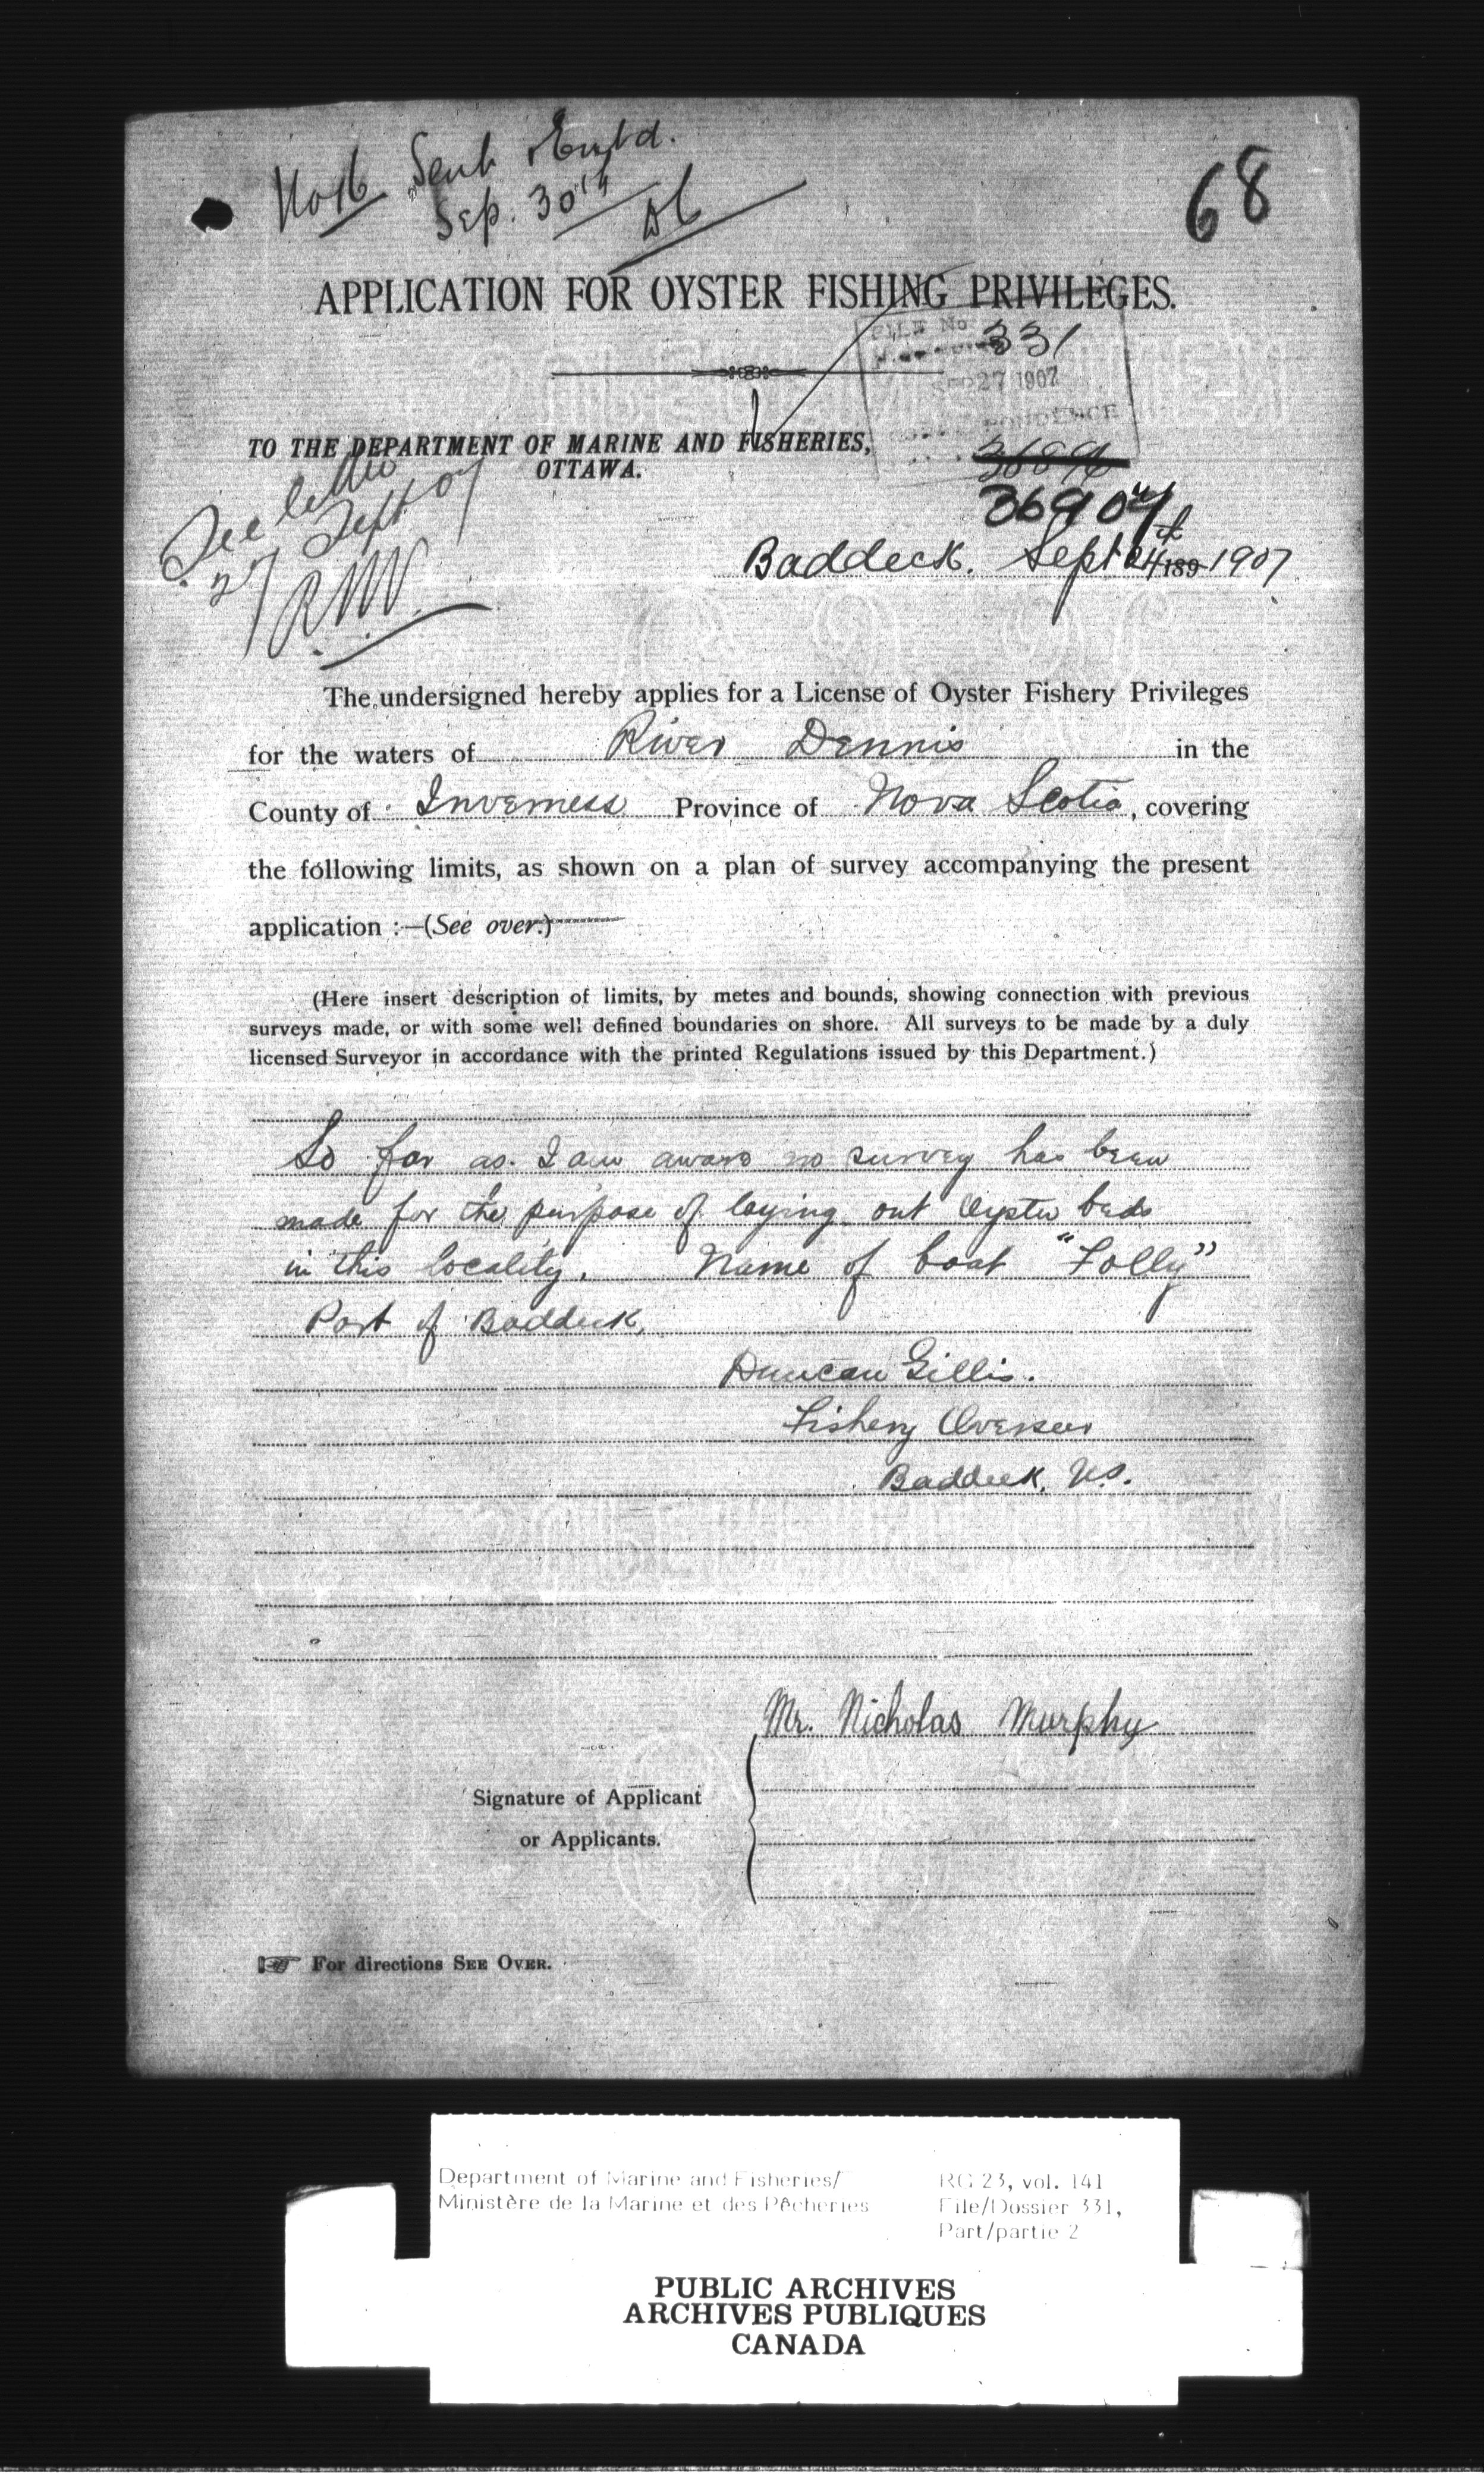 No 16 Sent & Entd.
Sep. 30th
68
APPLICATION FOR OYSTER FISHING PRIVILEGES.
FILE No 331
SEP 27 1907
CORRESPONDENCE
TO THE DEPARTMENT OF MARINE AND FISHERIES,
OTTAWA.
36896
36904
See letter
27 Sept 07
Baddeck. Sept 24th 189 1907
The undersigned hereby applies for a License of Oyster Fishery Privileges
for the waters of River Dennis in the
County of Inverness Province of Nova Scotia, covering
the following limits, as shown on a plan of survey accompanying the present
application :—(See over.)
(Here insert description of limits, by metes and bounds, showing connection with previous
surveys made, or with some well defined boundaries on shore. All surveys to be made by a duly
licensed Surveyor in accordance with the printed Regulations issued by this Department.)
So far as I am aware no survey has been
made for the purpose of laying out Oyster beds
in this locality. Name of boat "Folly"
Port of Baddeck,
Duncan Gillis.
Fishery Overseer
Baddeck, N.S.
Mr. Nicholas Murphy
Signature of Applicant
or Applicants.
For directions SEE OVER.
Department of Marine and Fisheries/
Ministère de la Marine et des Pêcheries
RG 23, vol. 141
File/Dossier 331,
Part/partie 2
PUBLIC ARCHIVES
ARCHIVES PUBLIQUES
CANADA